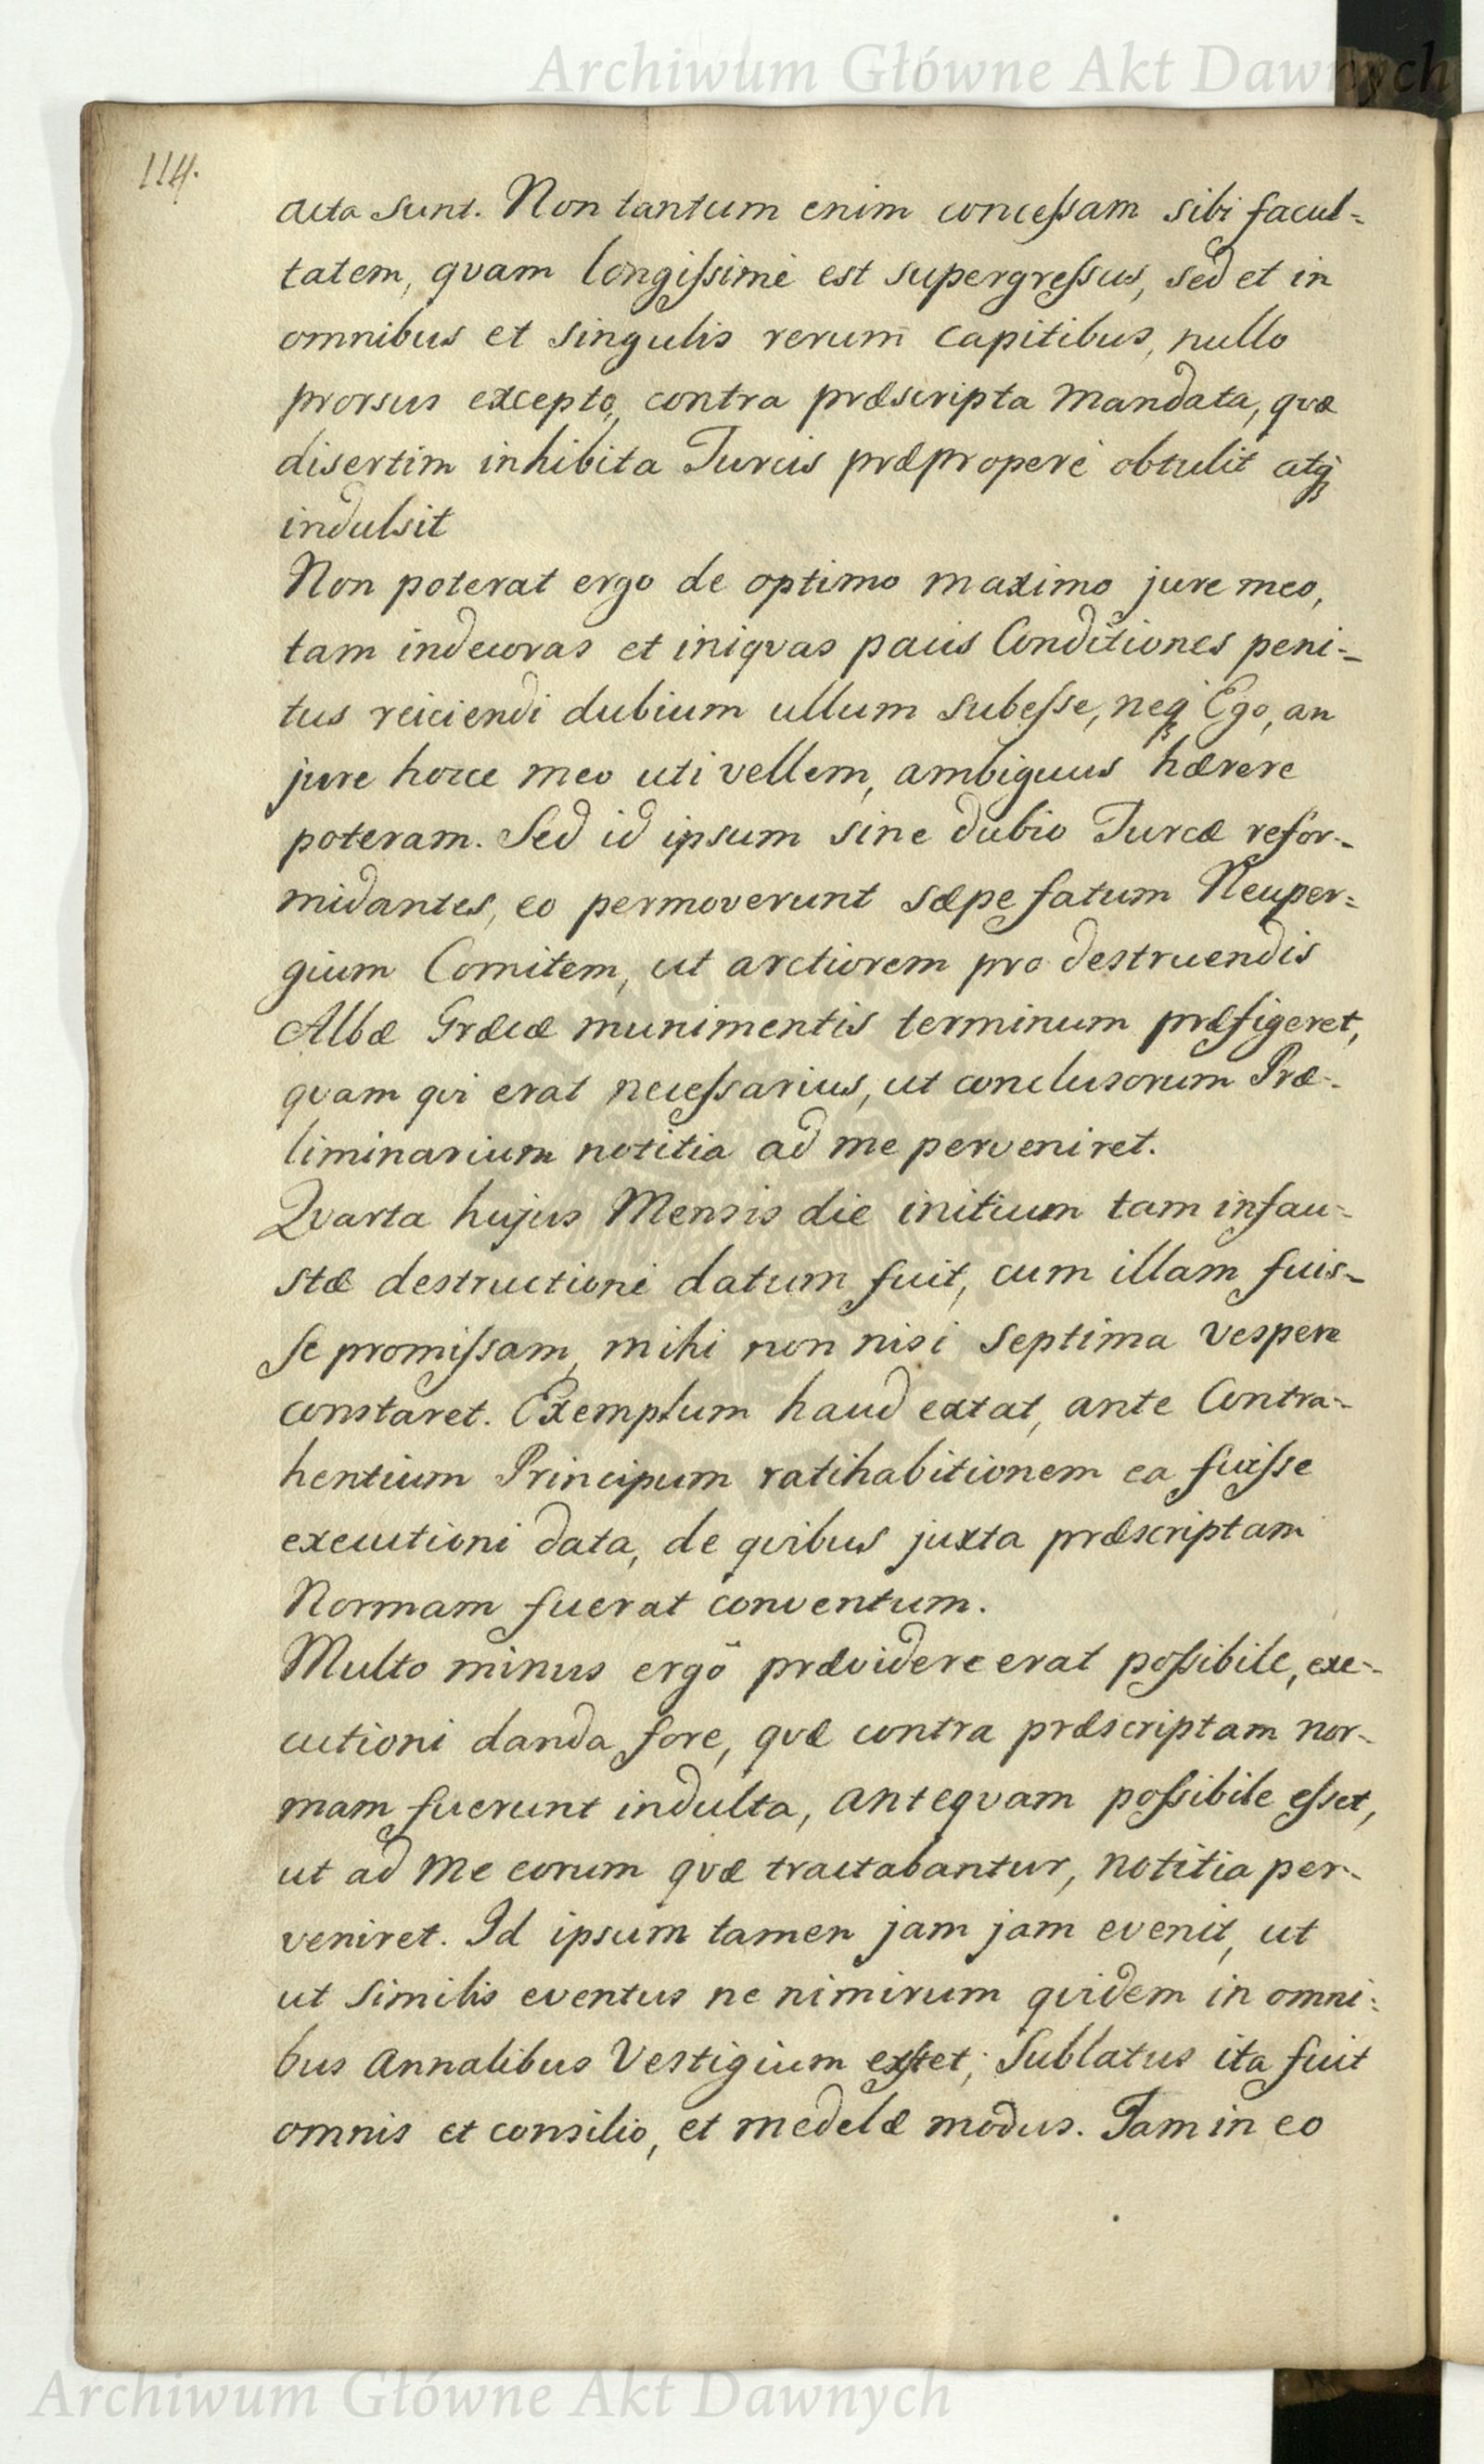 Archiwum Główne Akt Dawnych
114.
acta sunt. Non tantum enim concessam sibi facul=
tatem, quam longissimè est supergressus, sed et in
omnibus et singulis rerum capitibus, nullo
prorsus excepto, contra præscripta mandata, quæ
disertim inhibita Turcis præpropere obtulit atq
indulsit
Non poterat ergo de optimo maximo jure meo,
tam indecoras et iniquas pacis Conditiones peni=
tus reiciendi dubium ullum subesse, neq Ego, an
jure hocce meo uti vellem, ambiguus hærere
poteram. Sed id ipsum sine dubio Turcæ refor=
midantes, eo permoverunt sæpe fatum Neuper=
gium Comitem, ut arctiorem pro destruendis
Albæ Græcæ munimentis terminum præfigeret,
quam qui erat necessarius, ut conclusorum Præ=
liminarium notitia ad me perveniret.
Quarta hujus Mensis die initium tam infau=
stæ destructioni datum fuit, cum illam fuis=
se promissam, mihi non nisi septima vespere
constaret. Exemplum haud extat, ante Contra=
hentium Principum ratihabitionem ea fuisse
executioni data, de quibus juxta præscriptam
Normam fuerat conventum.
Multo minus ergò prævidere erat possibile, exe=
cutioni danda fore, quæ contra præscriptam nor=
mam fuerunt indulta, antequam possibile esset,
ut ad me eorum quæ tractabantur, notitia per=
veniret. Id ipsum tamen jam jam evenit, ut
ut similis eventus ne nimirum quidem in omni=
bus annalibus Vestigium extet; Sublatus ita fuit
omnis et consilio, et medelæ modus. Jam in eo
Archiwum Główne Akt Dawnych